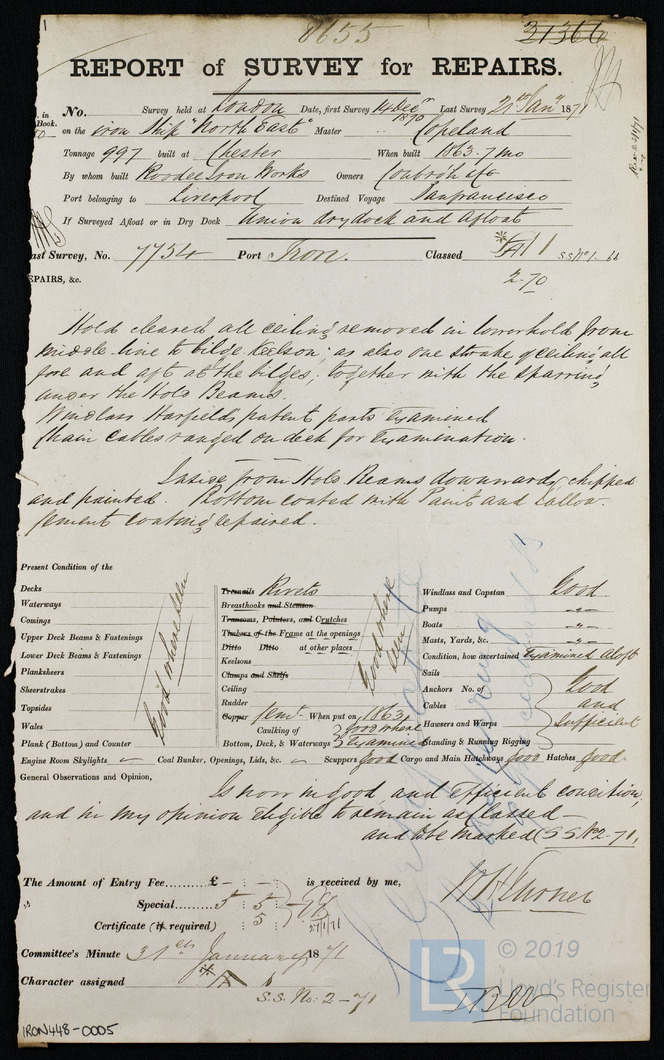 1
8655
31366
REPORT of SURVEY for REPAIRS.
No. Survey held at London Date, first Survey 14 Decr 1870 Last Survey 21st Jany 1871
on the iron Ship "North East" Master Copeland
Tonnage 997 built at Chester When built 1863. 7 mo
By whom built Roodee Iron Works Owners
Port belonging to Liverpool Destined Voyage Sanfrancisco
If Surveyed Afloat or in Dry Dock Union dry dock and Afloat
ast Survey, No. 7754 Port Iron. Classed A1 S.S. No 1.
2-70
EPAIRS, &c.
Hold cleared all ceiling removed in lower hold from
middle line to bilge Keelson; as also one strake of ceiling all
fore and aft at the bilges, together with the sparring
under the Hold Beams.
Windlass Harfields patent parts Examined
Chain Cables ranged on deck for Examination.
Inside from Hold Beams downwards chipped
and painted. Bottom coated with Paint and Tallow.
Cement coating repaired.
Present Condition of the
Decks
Waterways
Comings
Upper Deck Beams & Fastenings
Lower Deck Beams & Fastenings
Planksheers
Sheerstrakes
Topsides
Wales
Plank (Bottom) and Counter
Good where seen
Treenails Rivets
Breasthooks and Stemson
Transoms, Pointers, and Crutches
Timbers of the Frame at the openings
Ditto Ditto at other places
Keelsons
Clamps and Shelfs
Ceiling
Rudder
Copper Cemt. When put on 1863
Caulking of Good where
Bottom, Deck, & Waterways Examined
Good where seen
Windlass and Capstan Good
Pumps -"-
Boats -"-
Masts, Yards, &c. -"-
Condition, how ascertained Examined Aloft
Sails
Anchors No. of Good
Cables and
Hawsers and Warps Sufficient
Standing & Running Rigging
Engine Room Skylights Coal Bunker, Openings, Lids, &c. Scuppers Good Cargo and Main Hatchways Good Hatches Good
General Observations and Opinion,
Is now in good and Efficient condition,
and in my opinion eligible to remain as Classed -
and to be marked (S S No 2-71)
The Amount of Entry Fee......... £ - : - : - is received by me,
" Special....... 5 : 5
Certificate (if required) 5
27/1/71
Committee's Minute 31st January 1871
Character assigned A 1
S.S. No: 2-71
IRON448-0005
LR © 2019
Lloyd's Register
Foundation